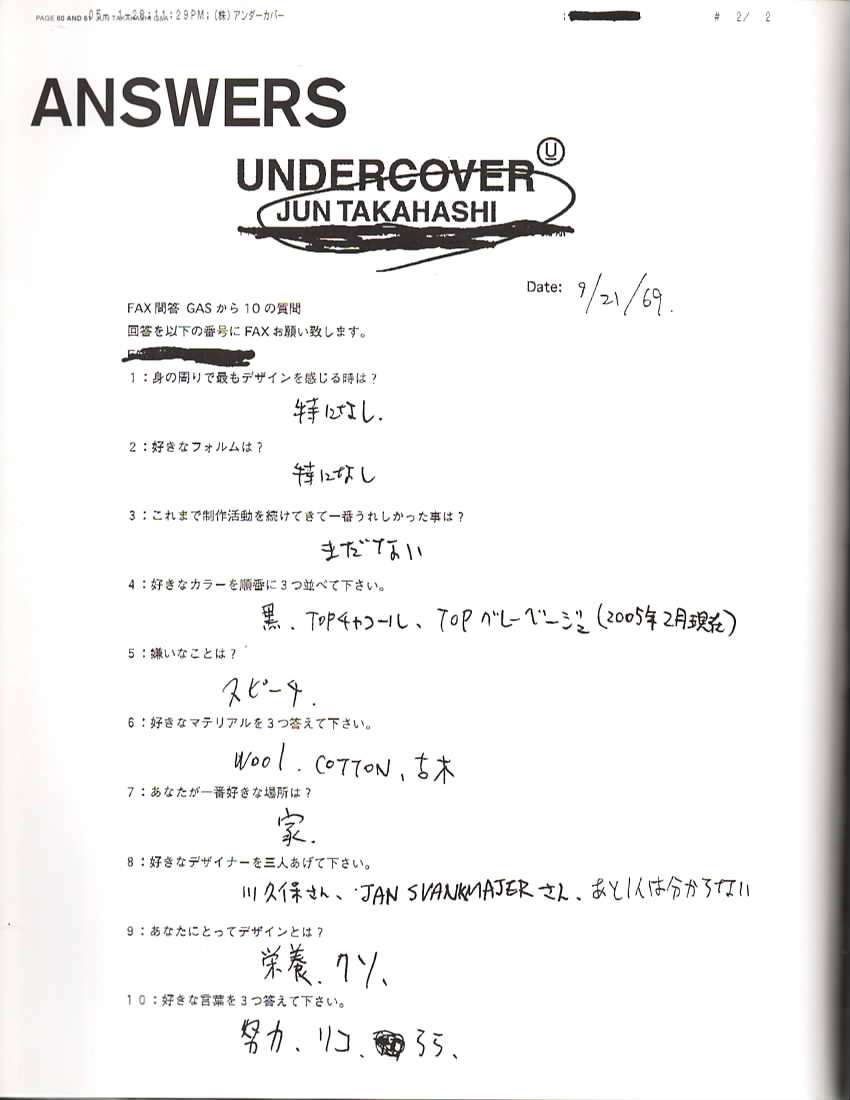 PAGE 60 AND 61 JUN TAKAHASHI Q&A
05- 1-28;11:29PM;(株)アンダーカバー ; # 2/ 2
ANSWERS
U
UNDERCOVER
JUN TAKAHASHI
Date: 9/21/69.
FAX問答 GASから10の質問
回答を以下の番号にFAXお願い致します。
1:身の周りで最もデザインを感じる時は?
特になし.
2:好きなフォルムは?
特になし
3:これまで制作活動を続けてきて一番うれしかった事は?
まだない
4:好きなカラーを順番に3つ並べて下さい。
黒、TOPチャコール、TOPグレーベージュ(2005年2月現在)
5:嫌いなことは?
スピーチ.
6:好きなマテリアルを3つ答えて下さい。
Wool. COTTON、古木
7:あなたが一番好きな場所は?
家.
8:好きなデザイナーを三人あげて下さい。
川久保さん、JAN SVANKMAJERさん、あと1人は分からない
9:あなたにとってデザインとは?
栄養、クソ、
10:好きな言葉を3つ答えて下さい。
努力、リコ、ララ、